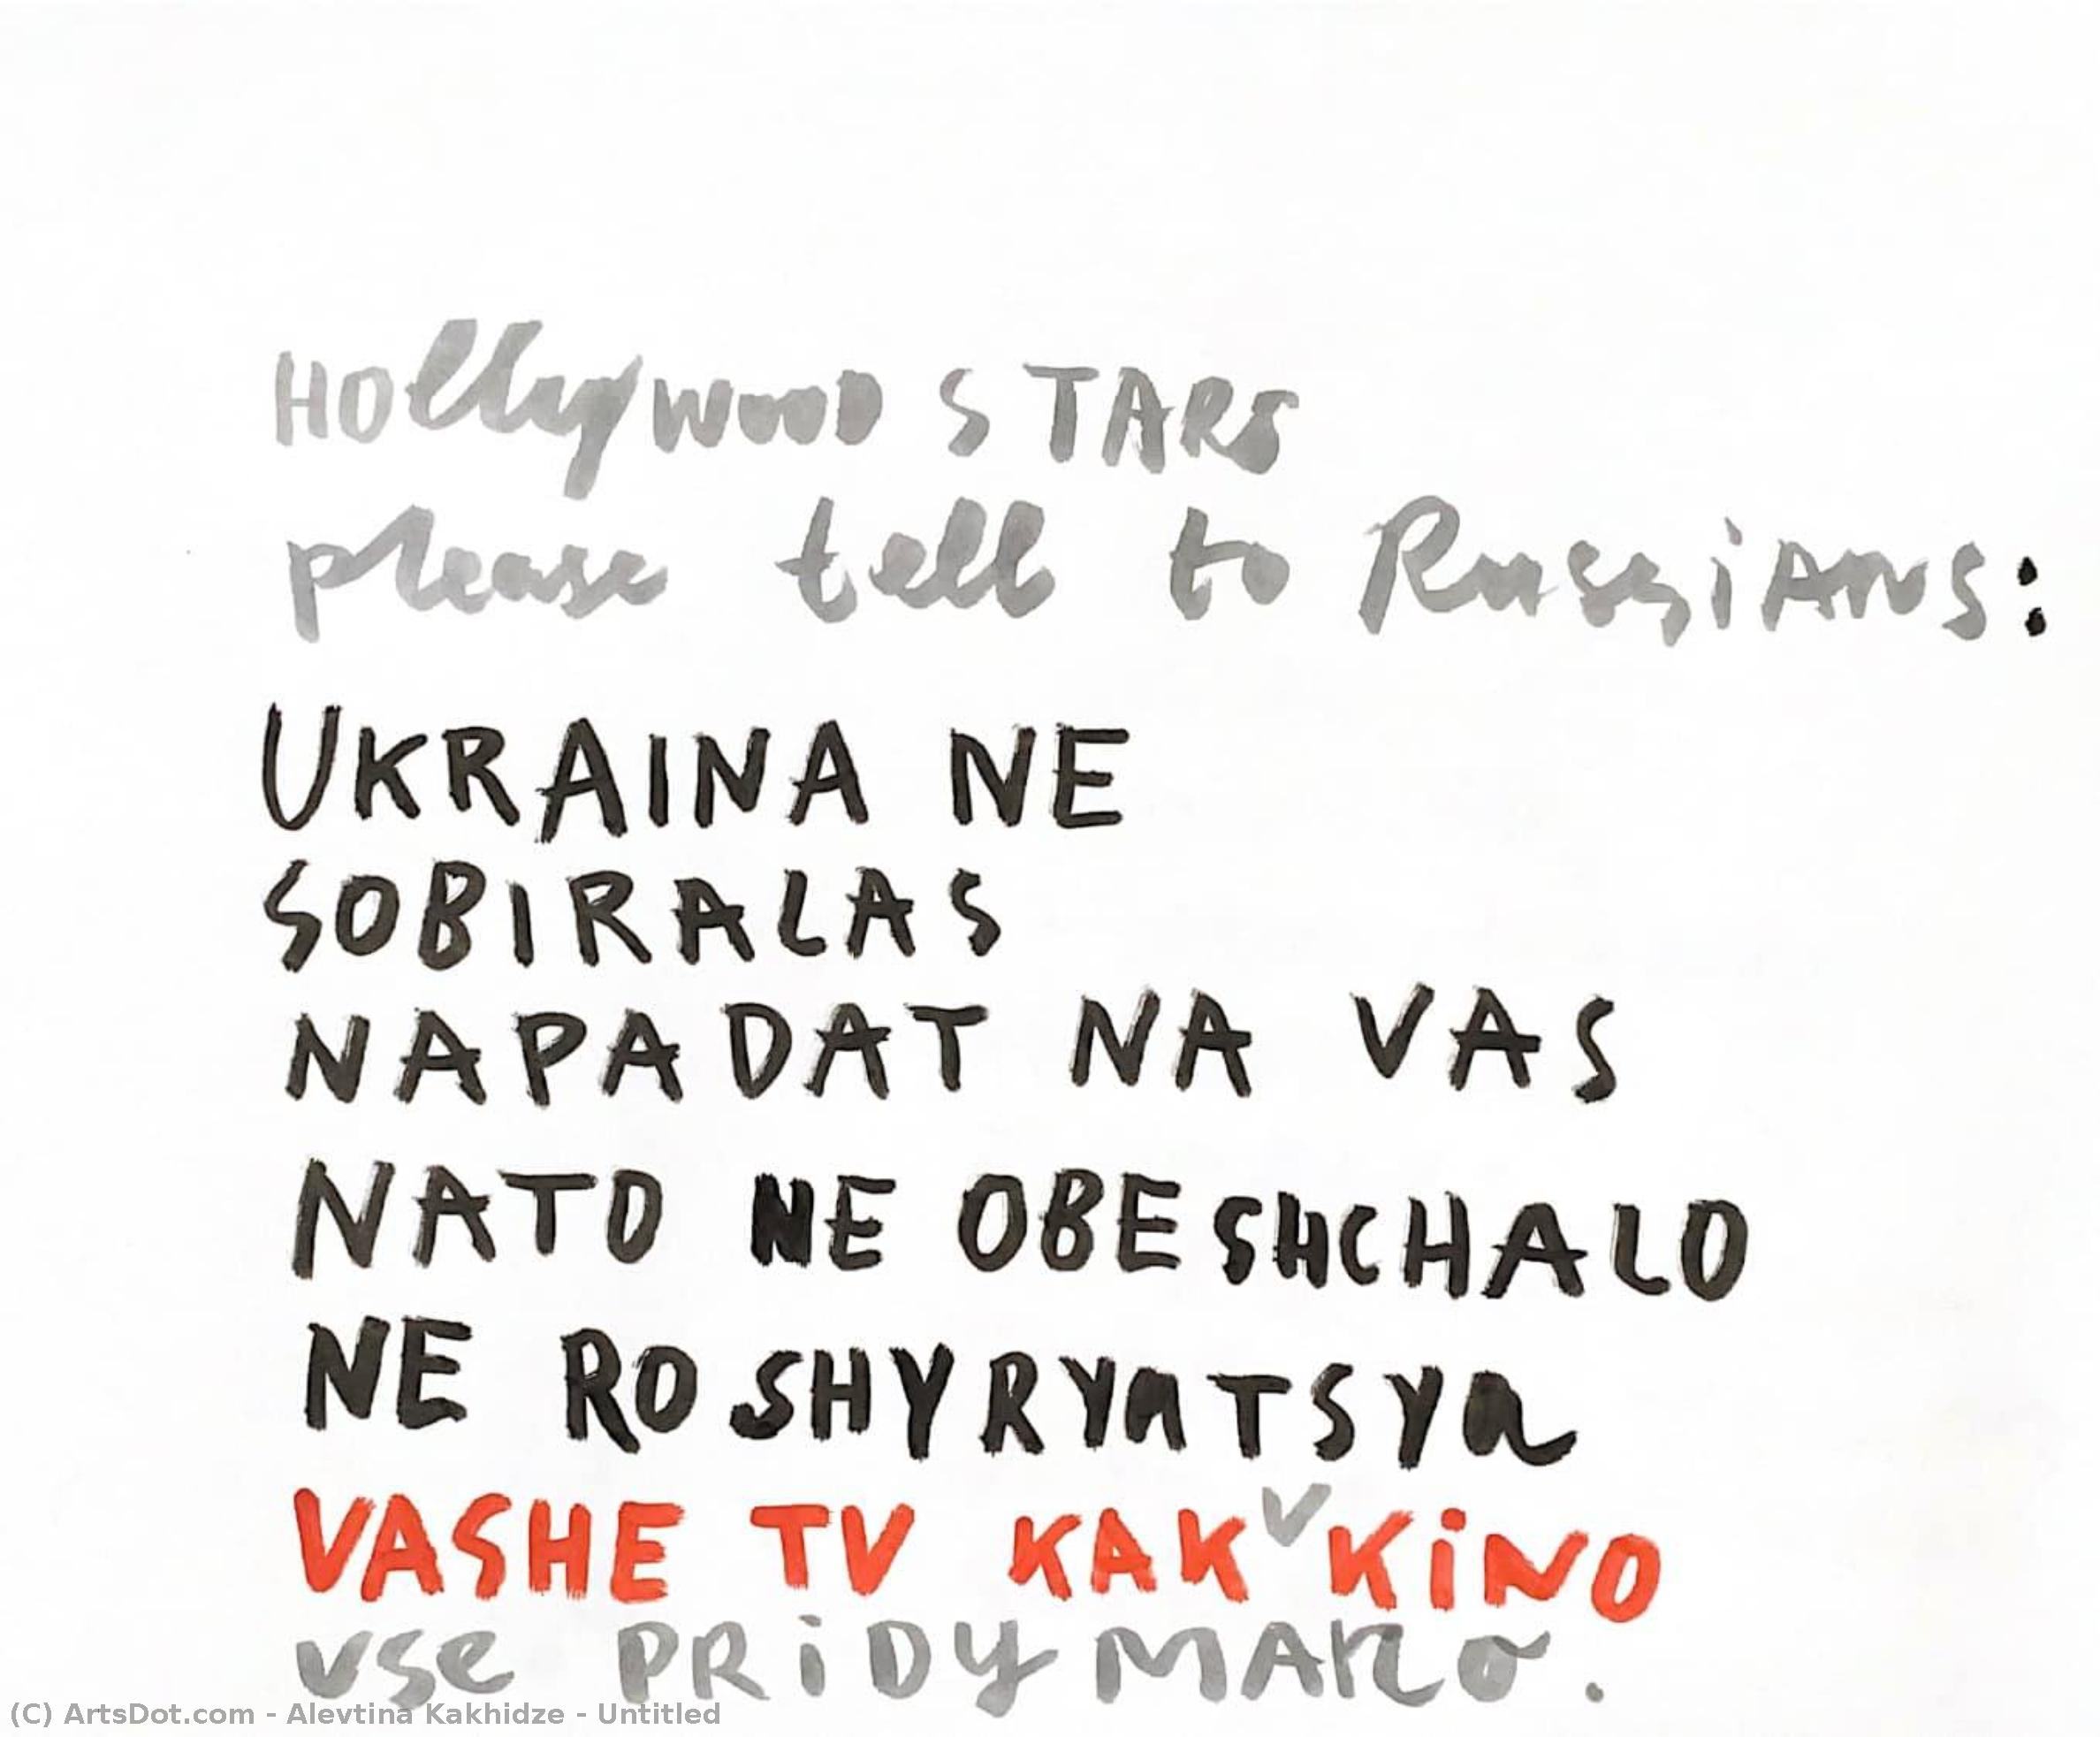 Hollywood STARS
please tell to RussiANS:
UKRAINA NE
SOBIRALAS
NAPADAT NA VAS
NATO NE OBESHCHALO
NE ROSHYRYATSYA
VASHE TV KAK V KiNO
vse PRiDYMANO.
(C) ArtsDot.com - Alevtina Kakhidze - Untitled